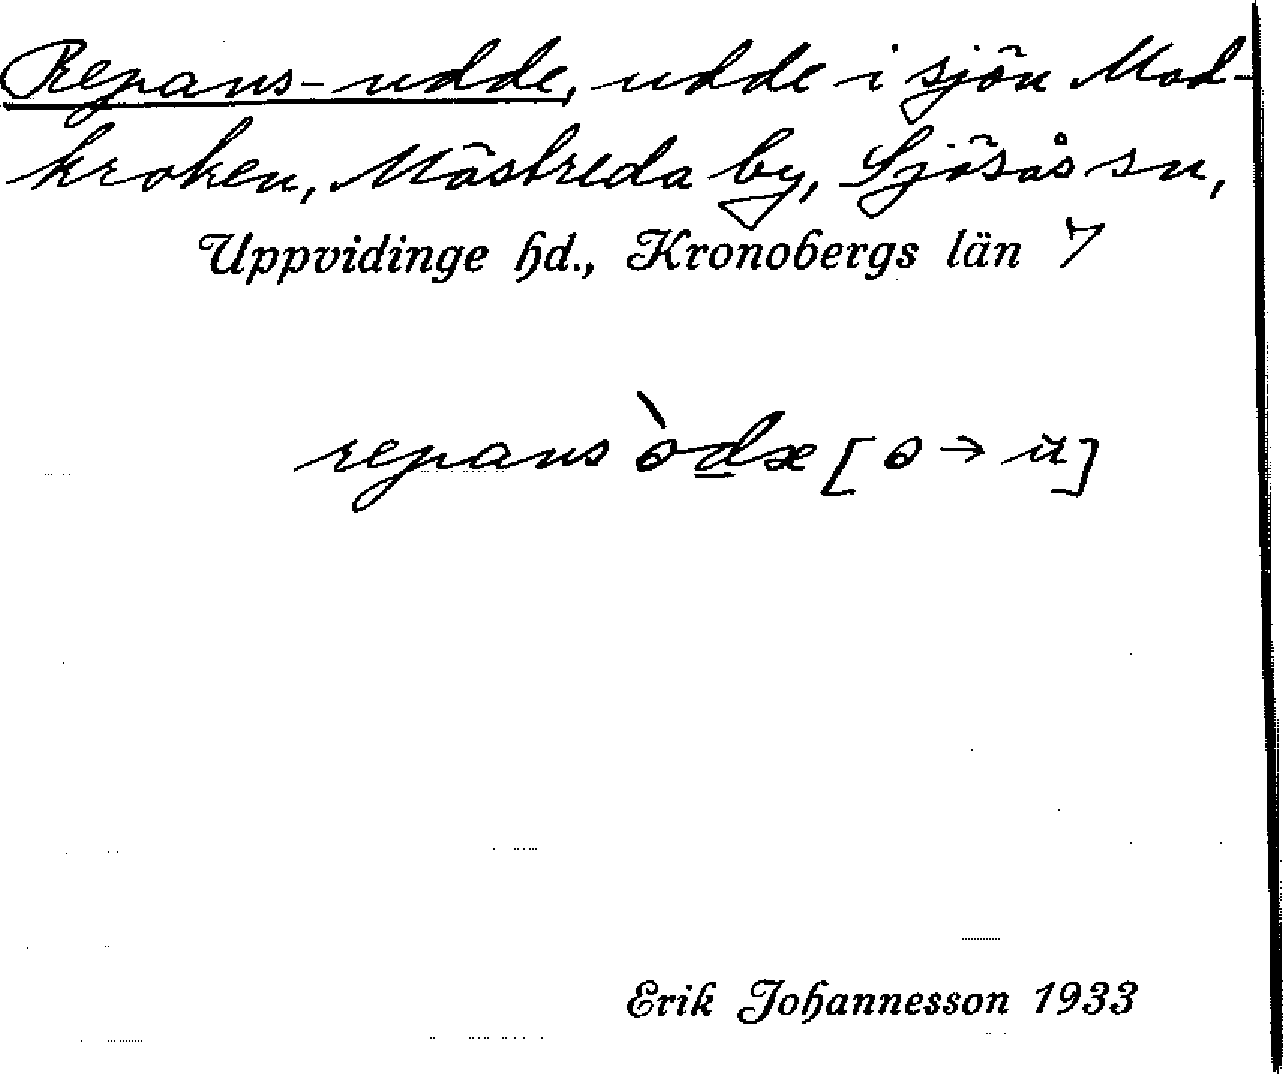 Repans-udde, udde i sjön Mad-
kroken, Mästreda by, Sjösås sn,
Uppvidinge hd., Kronobergs län 7
repans òdæ [ɵ → ü]
Erik Johannesson 1933